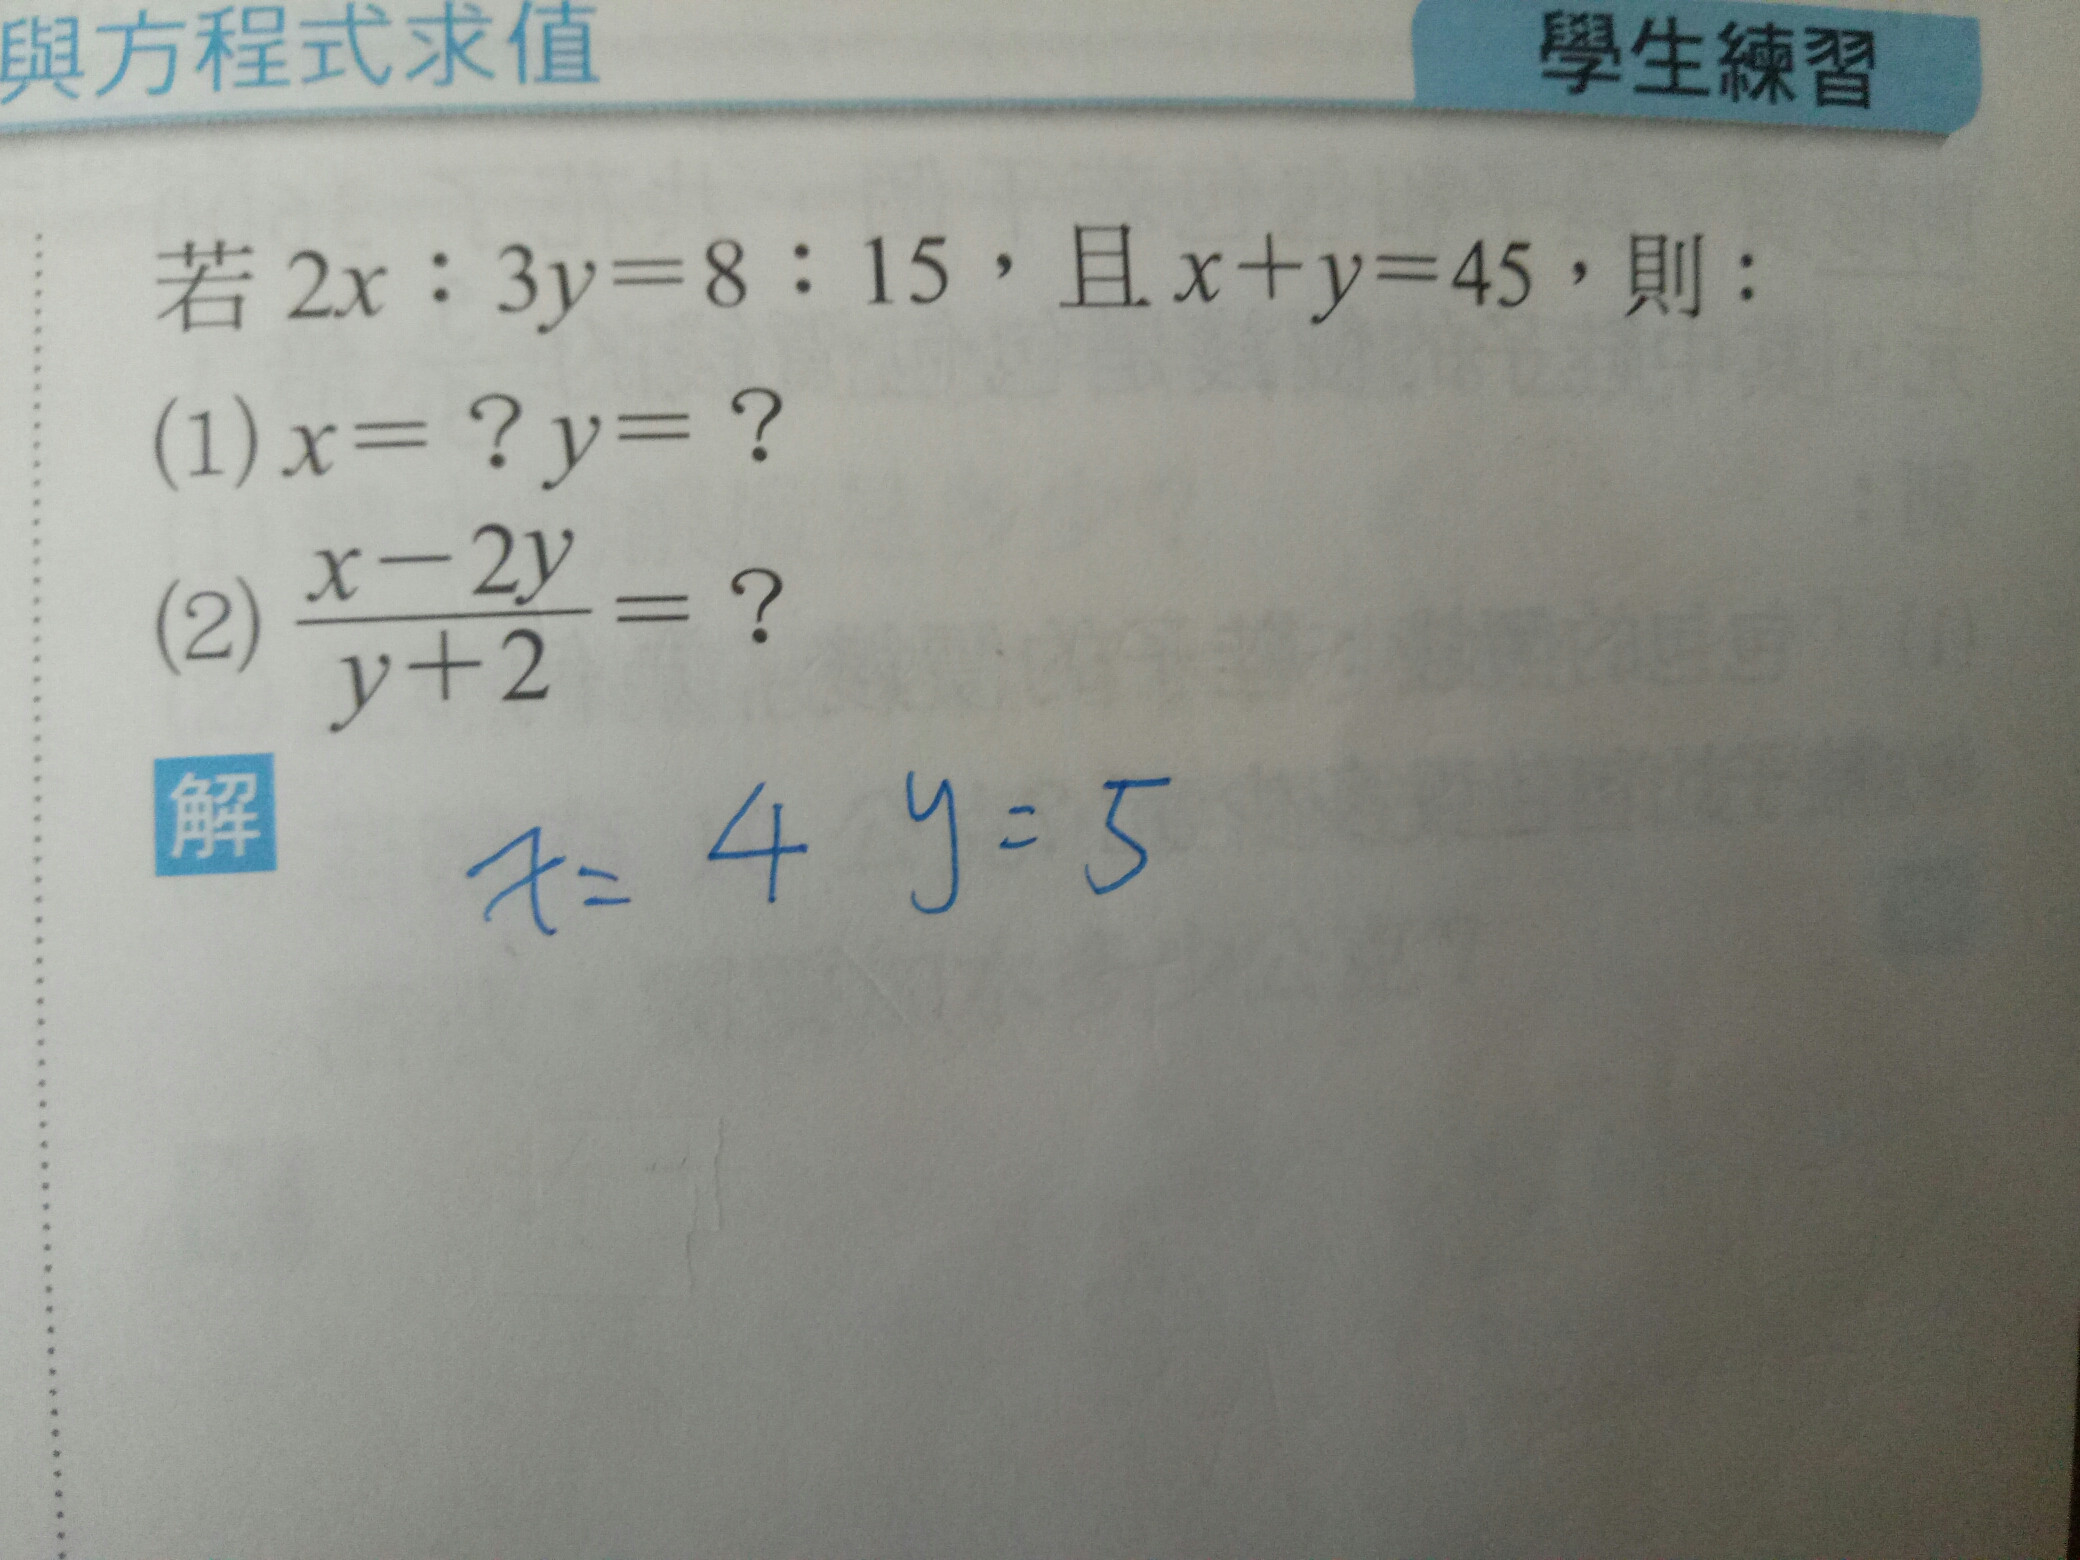 與方程式求值
學生練習
若 2x：3y=8：15，且 x+y=45，則：
(1) x=？y=？
(2) \frac{x-2y}{y+2}=？
解
x= 4 y=5